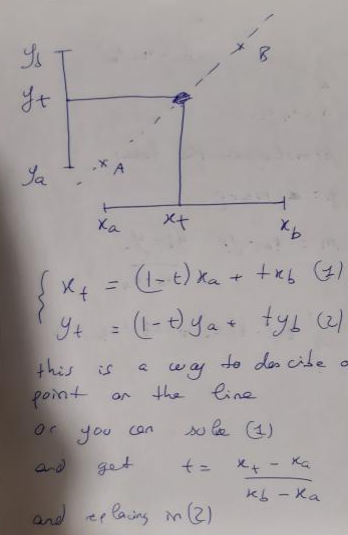 y_b
B
y_t
y_a
A
x_a x_t x_b
x_t = (1-t) x_a + t x_b (1)
y_t = (1-t) y_a + t y_b (2)
this is a way to describe a
point on the line
or you can solve (1)
and get t = (x_t - x_a) / (x_b - x_a)
and replacing in (2)